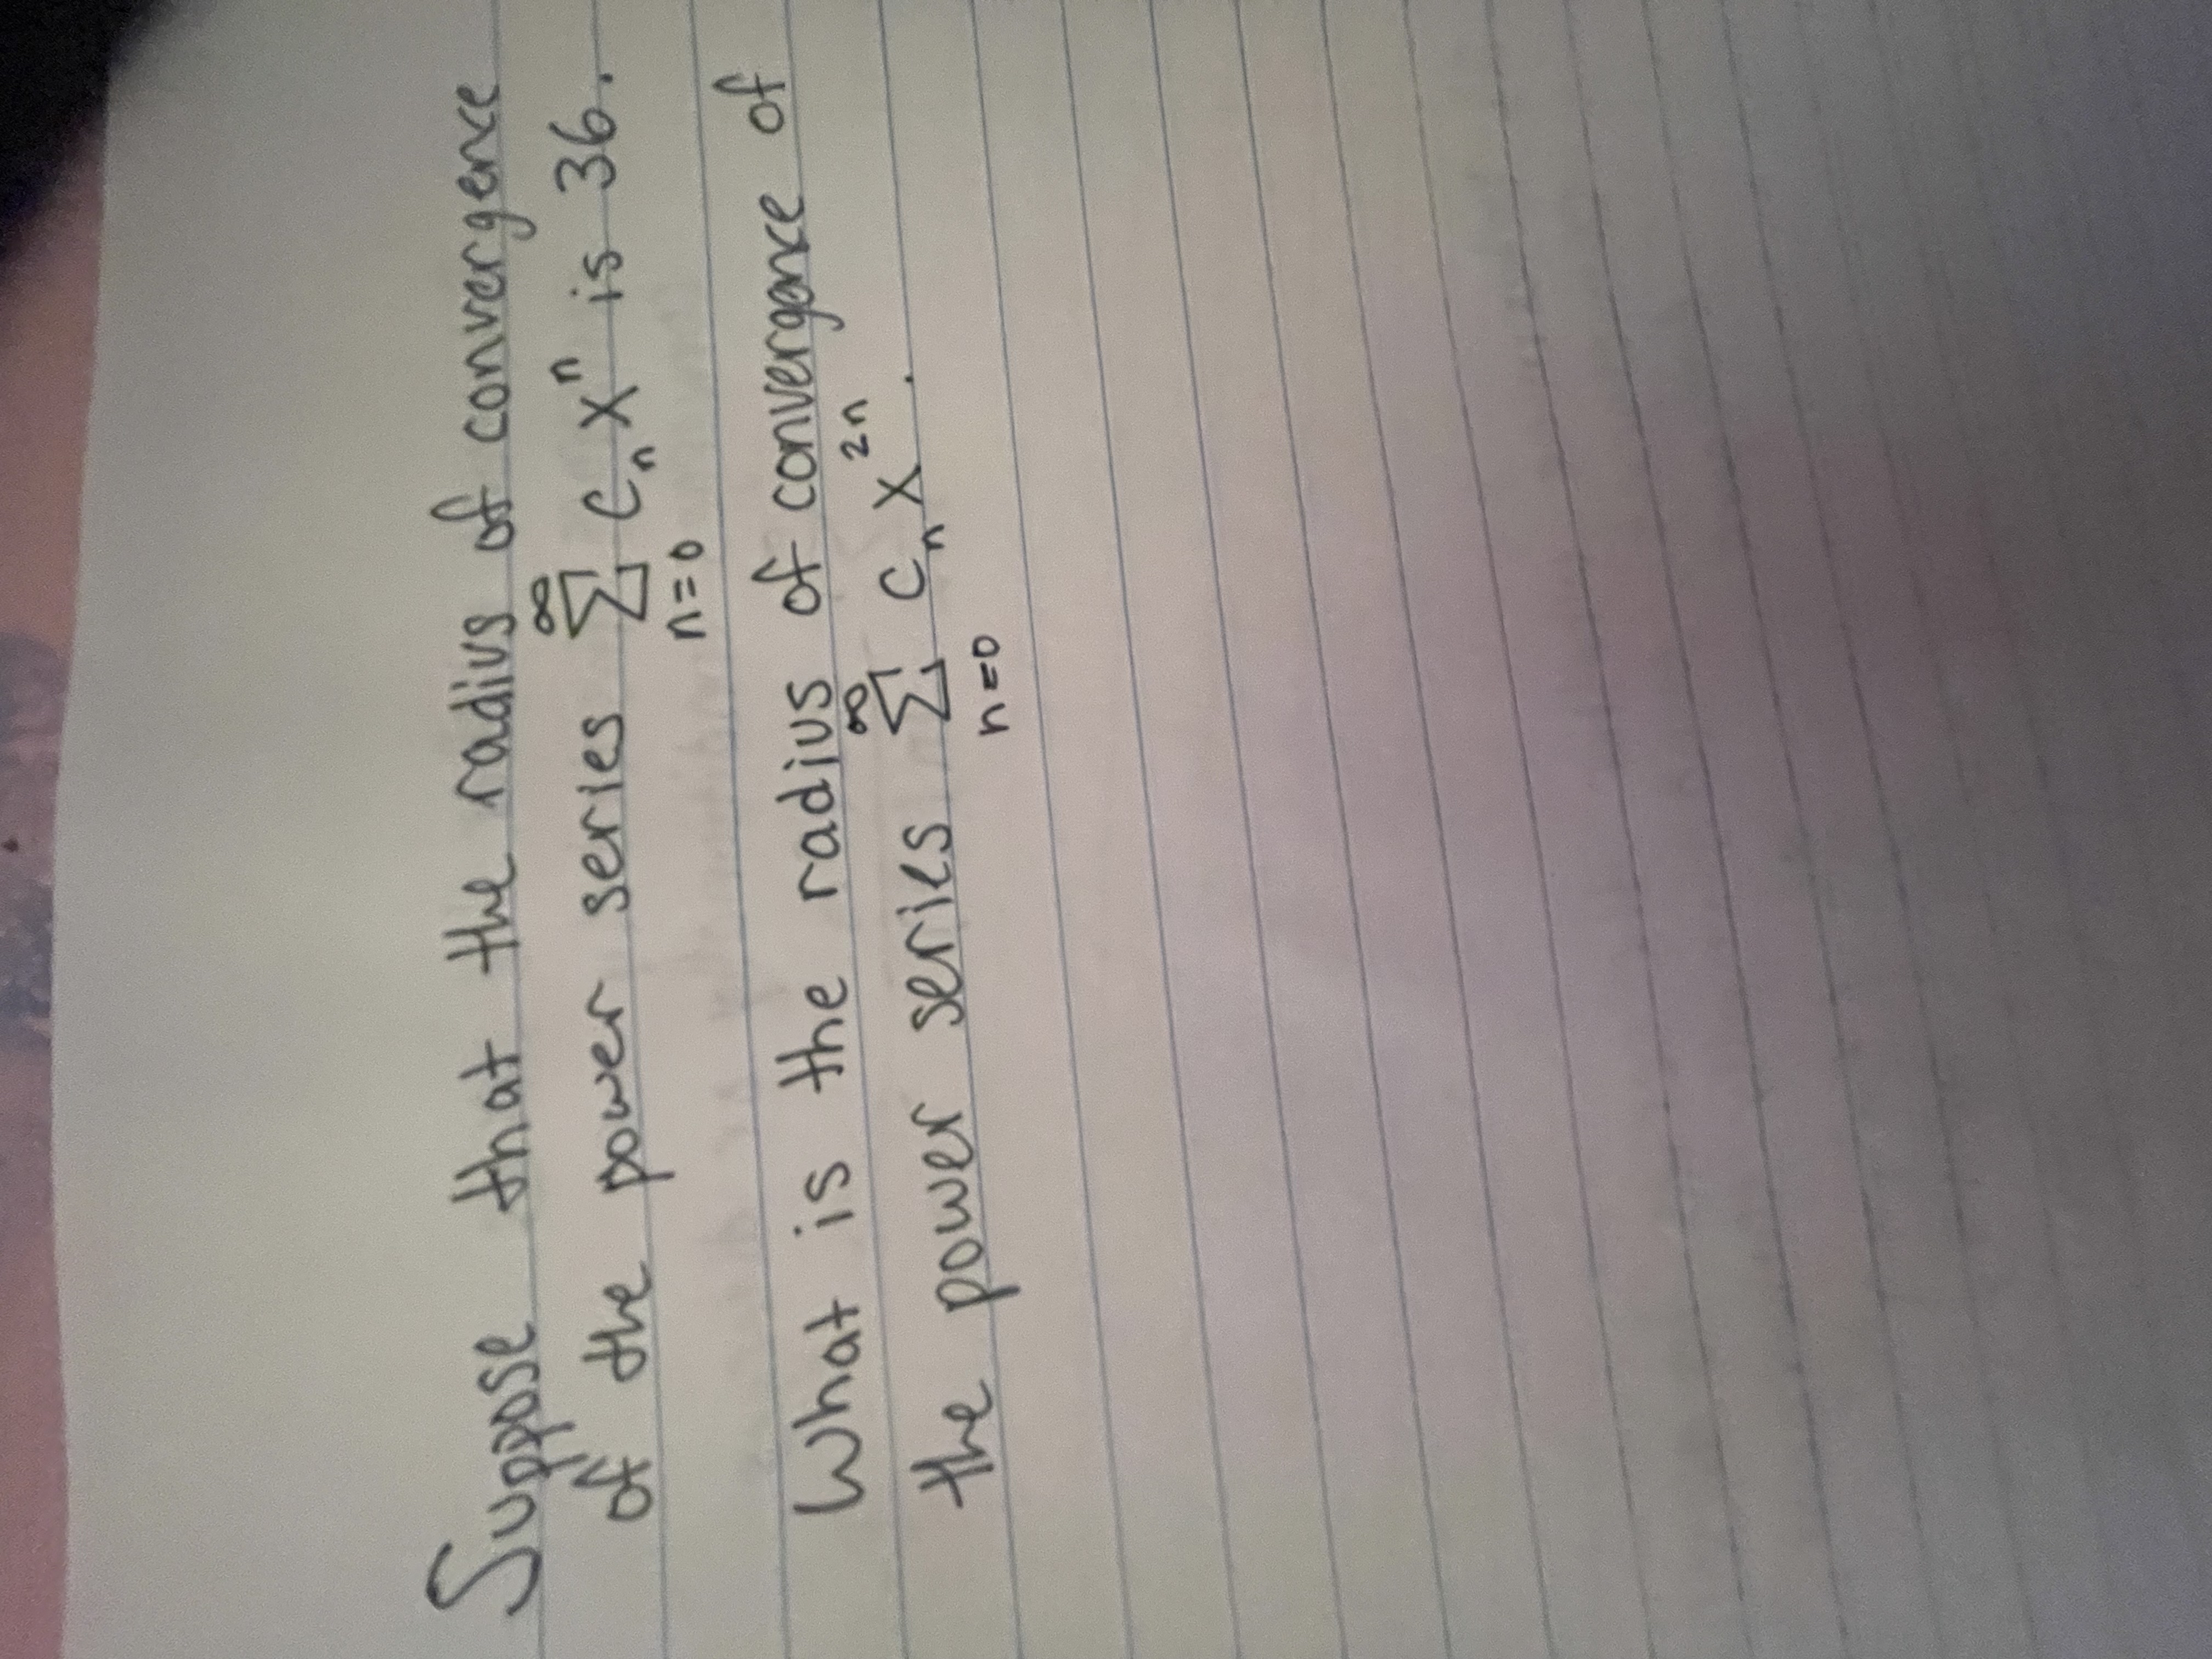 Suppose that the radius of convergence
of the power series ∞ ∑ n=0 cₙ xⁿ is 36.
What is the radius of convergence of
the power series ∞ ∑ n=0 cₙ x²ⁿ.